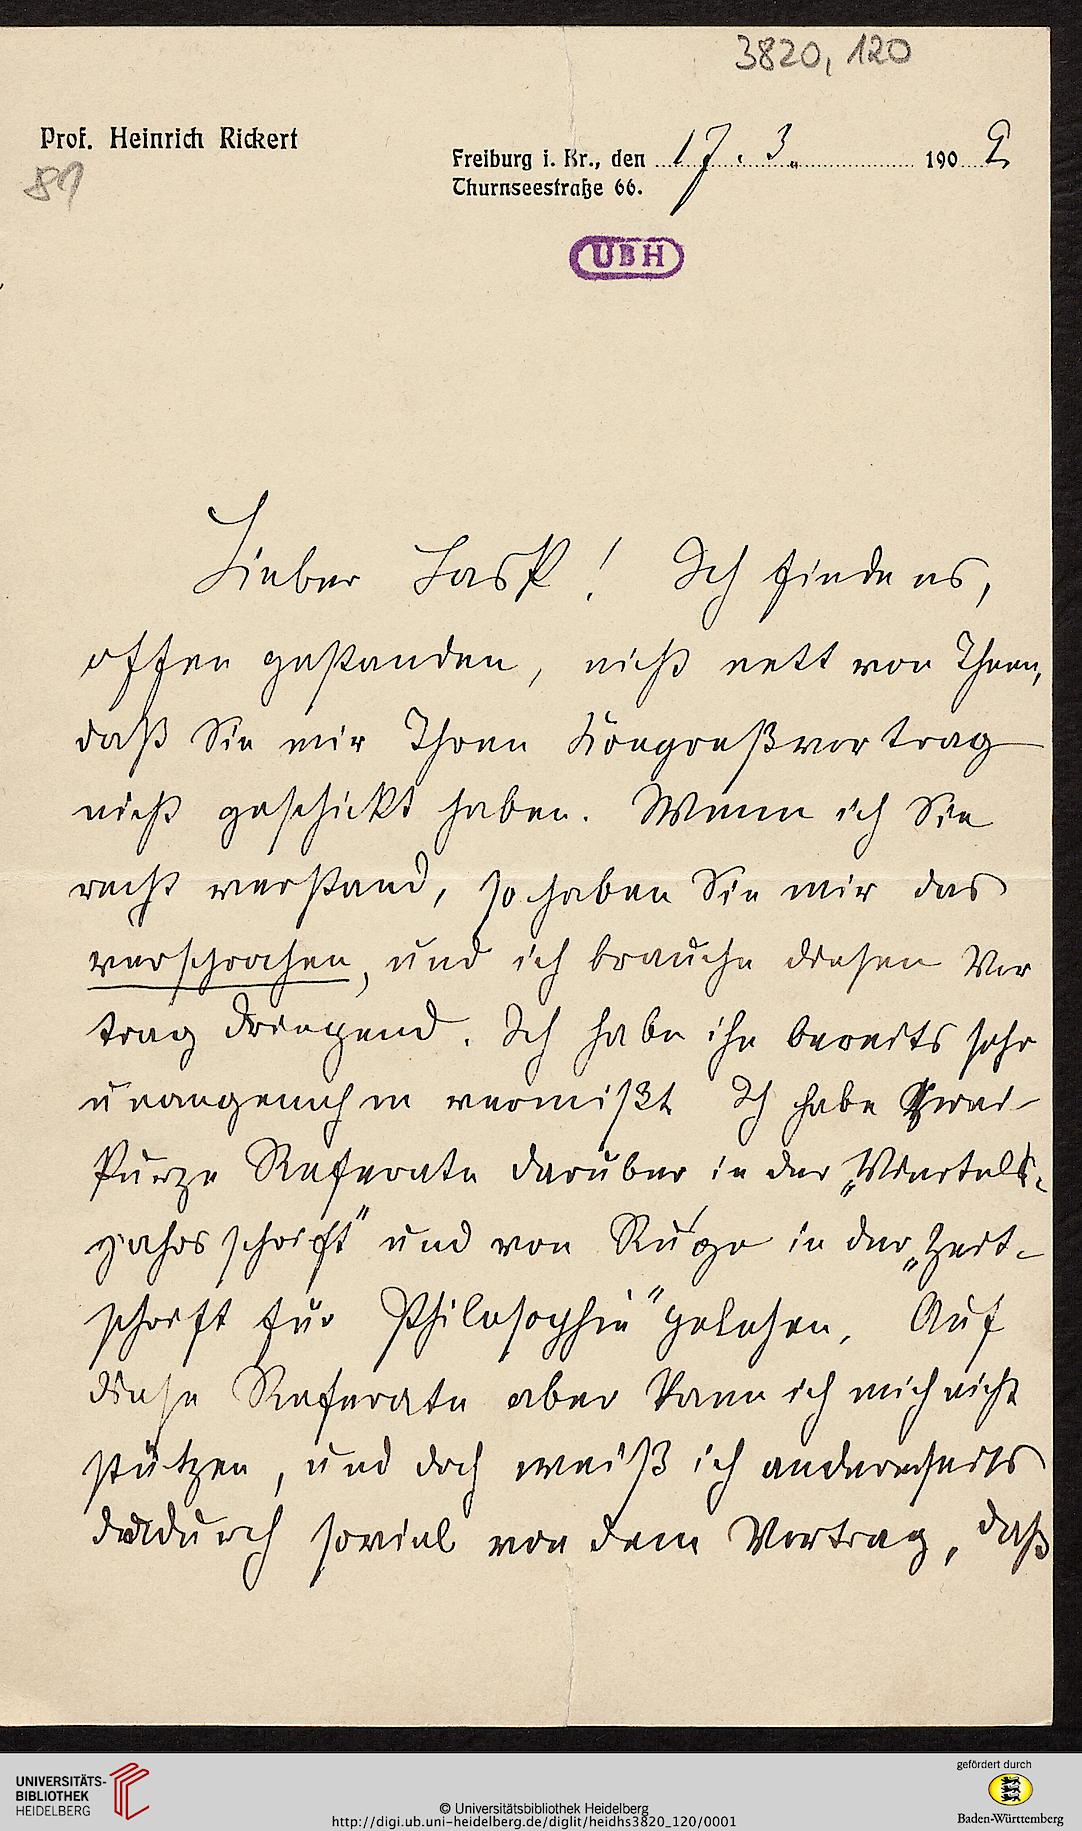 3820, 120
Prof. Heinrich Rickert
81
Freiburg i. Br., den 17. 3. 1909
Thurnseestraße 66.
UBH
Lieber Lask! Ich finde es,
offen gestanden, nicht nett von Ihnen,
daß Sie mir Ihren Kongreßvortrag
nicht geschickt haben. Wenn ich Sie
recht verstand, so haben Sie mir das
versprochen, und ich brauche diesen Vor
trag dringend. Ich habe ihn bereits sehr
unangenehm vermißt Ich habe zwei
kurze Referate darüber in der „Viertels-
jahrsschrift" und von Ruge in der „Zeit-
schrift für Philosophie" gelesen. Auf
diese Referate aber kann ich mich nicht
stützen, und doch weiß ich andererseits
dadurch soviel von dem Vortrag, daß
UNIVERSITÄTS-
BIBLIOTHEK
HEIDELBERG
© Universitätsbibliothek Heidelberg
http://digi.ub.uni-heidelberg.de/diglit/heidhs3820_120/0001
gefördert durch
Baden-Württemberg